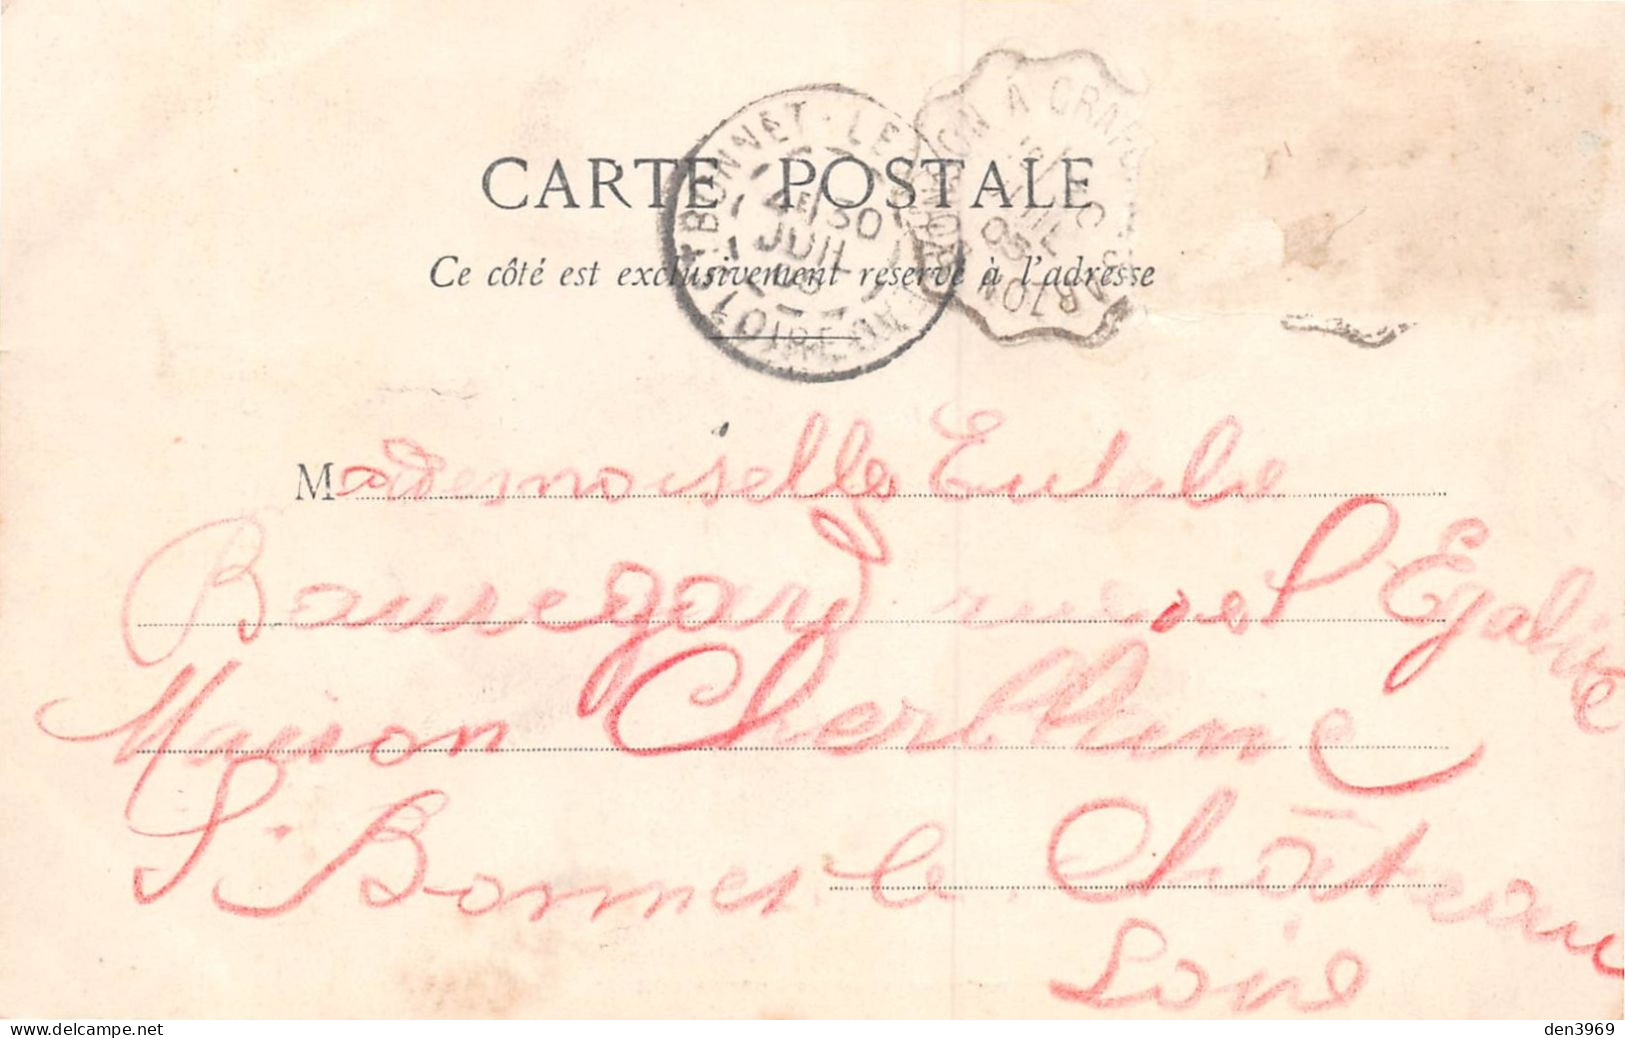 CARTE POSTALE
Ce côté est exclusivement réservé à l'adresse
ST BONNET-LE-
4E/30
JUIL
05
LOIRE
BONSON A CRAP
05
Mademoiselle Eulalie
Bouregard rue de l'Egalité
Maison Cherblanc
St Bonnet le Château
Loire
den3969